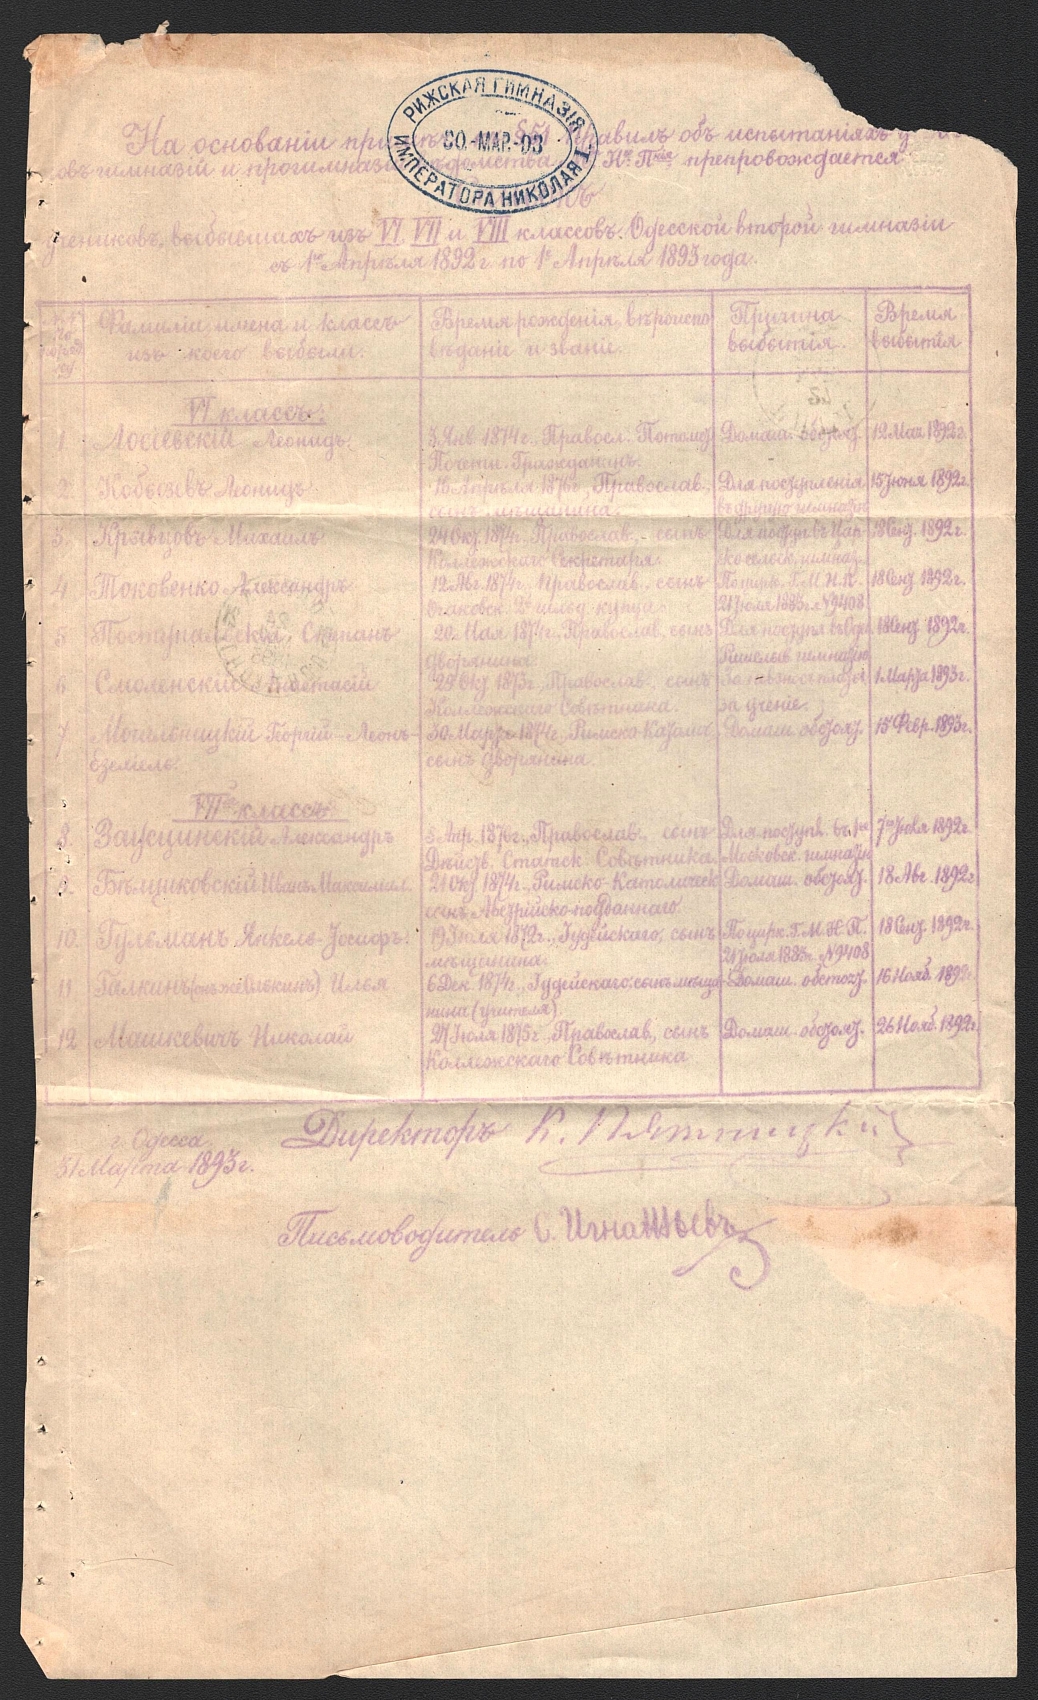 РИЖСКАЯ ГИМНАЗІЯ
30.-МАР.-03
ИМПЕРАТОРА НИКОЛАЯ I.
На основаніи § 51 правилъ объ испытаніяхъ
гимназій и прогимназій вѣдомства М. Н. Пр. препровождается
учениковъ, выбывшихъ изъ VI, VII и VIII классовъ. Одесской второй гимназіи
съ 1го Апрѣля 1892 г. по 1е Апрѣля 1893 года.
Фамиліи имена и классъ Время рожденія, вѣроиспо Причина Время
изъ коего выбыли. вѣданіе и званіе. выбытія. выбытія
VI классъ.
1 Лосіевскій Леонидъ. 3 Янв 1874 г. Правосл. Потомст Домаш. обстоят. 12 Мая 1892 г.
Почетн. Гражданинъ.
2. Кобызевъ Леонидъ 16 Апрѣля 1876 г., Православ. Для поступленія 15 Іюня 1892 г.
сынъ мѣщанина. въ другую гимназію
3. Кривцовъ Михаилъ 24 Окт. 1874 г. Православ. сынъ Для поступ. въ Цар- 13 Сент. 1892 г.
Коллежскаго Секретаря скосельск. гимназ.
4 Токовенко Александръ 12 Авг. 1874 г. Православ. сынъ По цирк. Г. М. Н. П. 18 Сент. 1892 г.
Очаковск. 2й гильд. купца 21 Іюля 1883 г. № 9408
5 Степанъ 20 Мая 1874 г., Православ. сынъ Для поступл. въ 18 Сент. 1892 г.
дворянина. Ришельев. гимназію
6 Смоленскій 29 Окт 1873 г., Православ. сынъ За невзносъ платы 1 Марта 1893 г.
Коллежскаго Совѣтника. за ученіе.
7 Могильницкій Георгій-Леонъ- 30 Марта 1874 г., Римско Католич. Домаш. обстоят. 15 Февр. 1893 г.
сынъ дворянина.
VIIй классъ
8. Заусцинскій Александръ 5 Апр. 1876 г., Православ. сынъ Для поступл. въ 1ю 7го Іюня 1892 г.
Дѣйств. Статск. Совѣтника Московск. гимназію
9. Иванъ Максимил. 21 Окт 1874 г., Римско-Католическ Домаш. обстоят. 18 Авг. 1892 г
сынъ Австрійско-подданнаго
10. Гульманъ Янкель-Іосифъ. 19 Іюля 1872 г., Іудейскаго, сынъ По цирк. Г. М. Н. П. 18 Сент. 1892 г.
мѣщанина. 21 Іюля 1883 г. № 9408
11 Галкинъ (онъ же Элькинъ) Илья 6 Дек 1874 г., Іудейскаго, сынъ мѣща- Домаш. обстоят. 16 Нояб. 1892 г
нина (учителя).
12 Машкевичъ Николай 27 Іюля 1875 г., Православ., сынъ Домаш. обстоят. 26 Нояб. 1892 г.
Коллежскаго Совѣтника
г. Одесса Директоръ К. Пятницкій
31 Марта 1893 г.
Письмоводитель С. Игнатьевъ